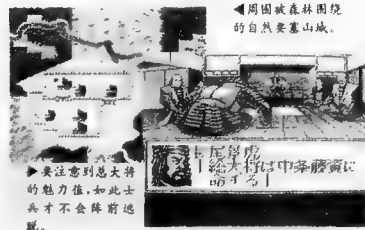 ◀周围被森林围绕
的自然要塞山城。
▶要注意到总大将
的魅力值,如此士
兵才不会阵前逃
脱。
総大将は中条藤資に
命ずる